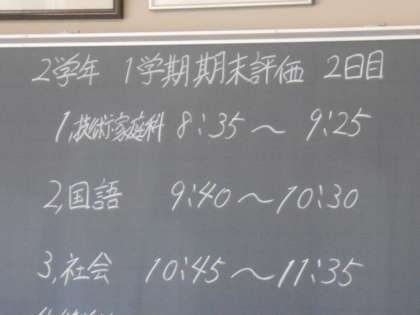 2学年 1学期期末評価 2日目
1,技術・家庭科 8:35〜9:25
2,国語 9:40〜10:30
3,社会 10:45〜11:35